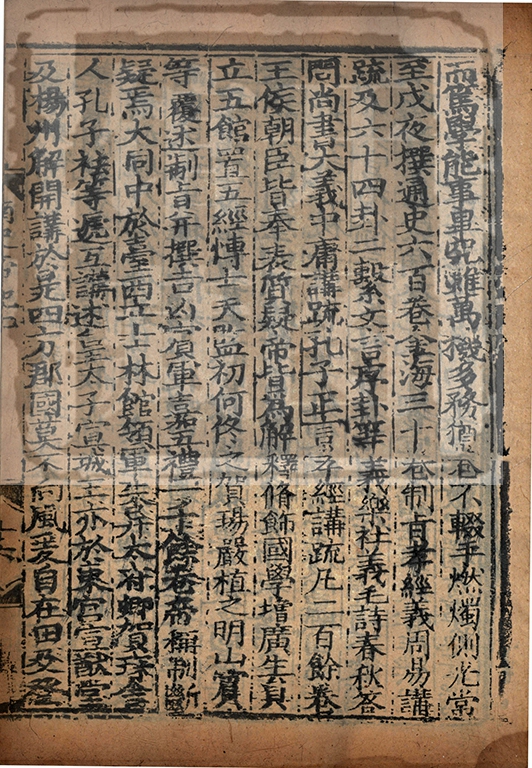 而篤學能事畢究雖萬機多務猶卷不輟手燃燭側光常
至戊夜撰通史六百卷金海三十卷制旨孝經義周易講
疏及六十四卦二繫文言序卦等義樂社義毛詩春秋荅
問尚書大義中庸講疏孔子正言孝經講疏凡二百餘卷
王侯朝臣皆奉表質疑帝皆爲解釋脩飾國學增廣生員
立五館置五經博士天監初何佟之賀瑒嚴植之明山賓
等覆述制旨并撰吉凶賓軍嘉五禮一千餘卷帝稱制斷
疑焉大同中於臺西立士林館領軍朱异太府卿賀琛舍
人孔子袪等遞互講述皇太子宣城王亦於東宮宣猷堂
及楊州解開講於是四方郡國莫不向風爰自在田及登